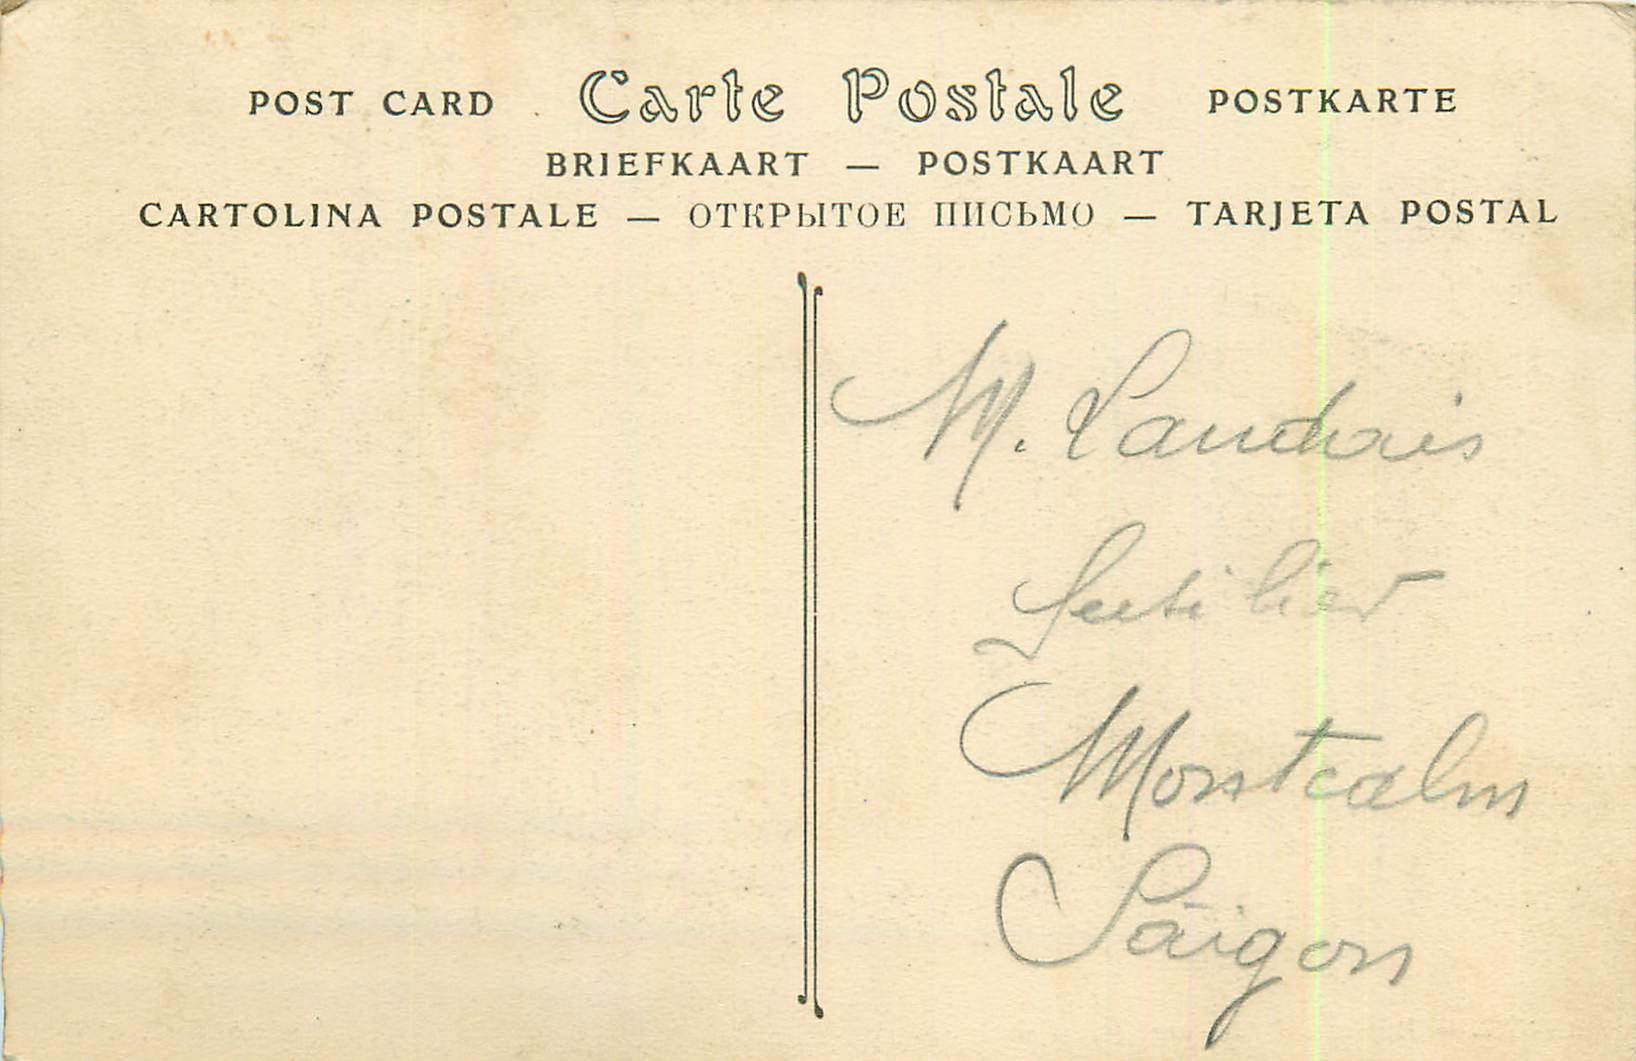 POST CARD Carte Postale POSTKARTE
BRIEFKAART — POSTKAART
CARTOLINA POSTALE — ОТКРЫТОЕ ПИСЬМО — TARJETA POSTAL
M. Landrais
Montcalm
Saïgon